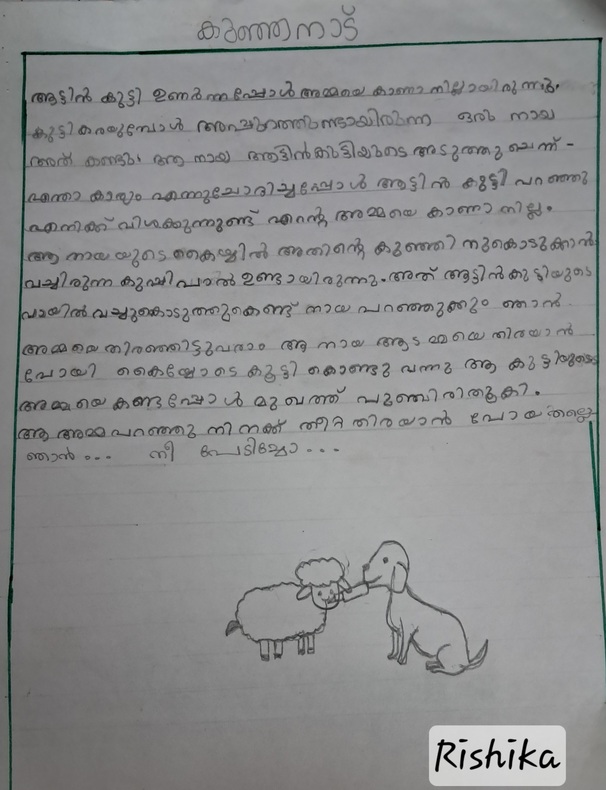 കുഞ്ഞനാട്
ആട്ടിൻ കുട്ടി ഉണർന്നപ്പോൾ അമ്മയെ കാണാനില്ലായിരുന്നു.
കുട്ടി കരയുമ്പോൾ അപ്പുറത്തുണ്ടായിരുന്ന ഒരു നായ
അത് കണ്ടു. ആ നായ ആട്ടിൻകുട്ടിയുടെ അടുത്തു ചെന്ന് -
എന്താ കാര്യം എന്നുചോദിച്ചപ്പോൾ ആട്ടിൻ കുട്ടി പറഞ്ഞു
എനിക്ക് വിശക്കുന്നുണ്ട് എന്റെ അമ്മയെ കാണാനില്ല.
ആ നായയുടെ കൈയ്യിൽ അതിന്റെ കുഞ്ഞിനുകൊടുക്കാൻ
വച്ചിരുന്ന കുപ്പിപാൽ ഉണ്ടായിരുന്നു. അത് ആട്ടിൻകുട്ടിയുടെ
വായിൽ വച്ചുകൊടുത്തുകൊണ്ട് നായ പറഞ്ഞു ഞാൻ
അമ്മയെ തിരഞ്ഞിട്ടുവരാം ആ നായ ആടമ്മയെ തിരയാൻ
പോയി കൈയ്യോടെ കൂട്ടി കൊണ്ടു വന്നു ആ കുട്ടിയുടെ
അമ്മയെ കണ്ടപ്പോൾ മുഖത്ത് പുഞ്ചിരിതൂകി.
ആ അമ്മ പറഞ്ഞു നിനക്ക് തീറ്റ തിരയാൻ പോയതല്ലെ
ഞാൻ ... നീ പേടിച്ചോ ...
Rishika